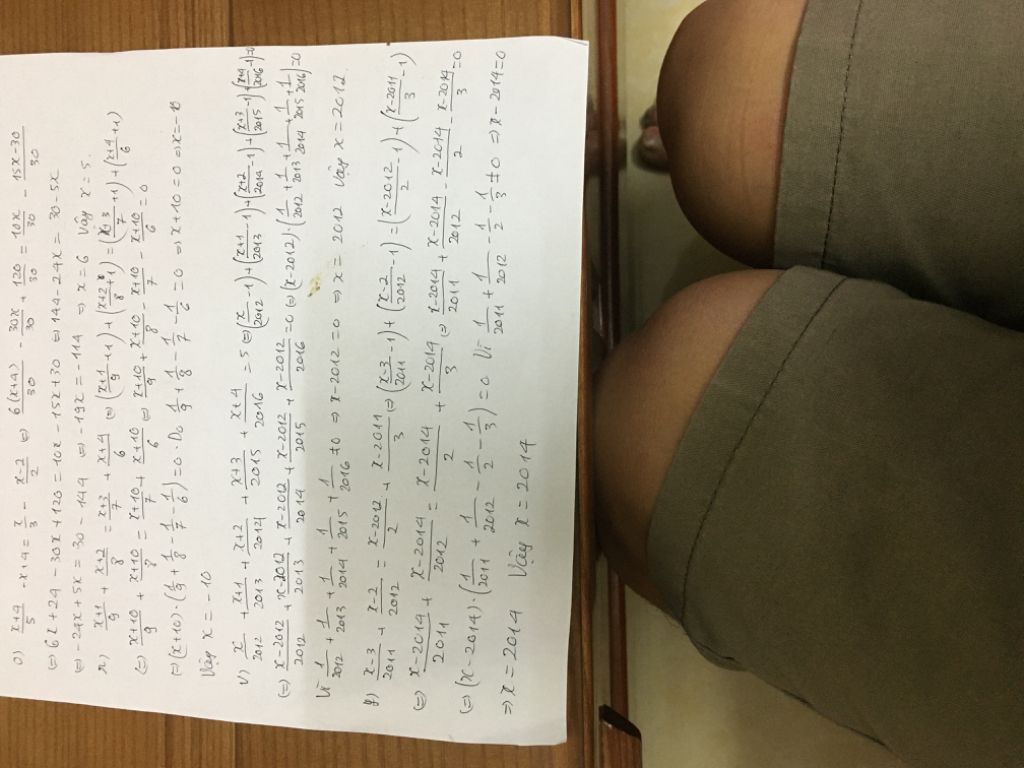 o) (x+4)/5 - x + 4 = x/3 - (x-2)/2 ⇔ 6(x+4)/30 - 30x/30 + 120/30 = 10x/30 - (15x-30)/30
⇔ 6x + 24 - 30x + 120 = 10x - 15x + 30 ⇔ 144 - 24x = 30 - 5x
⇔ -24x + 5x = 30 - 144 ⇔ -19x = -114 ⇒ x = 6 Vậy x = 5.
(x+1)/9 + (x+2)/8 = (x+3)/7 + (x+4)/6 ⇔ ((x+1)/9 + 1) + ((x+2)/8 + 1) = ((x+3)/7 + 1) + ((x+4)/6 + 1)
⇔ (x+10)/9 + (x+10)/8 = (x+10)/7 + (x+10)/6 ⇔ (x+10)/9 + (x+10)/8 - (x+10)/7 - (x+10)/6 = 0
⇔ (x+10).(1/9 + 1/8 - 1/7 - 1/6) = 0. Do 1/9 + 1/8 - 1/7 - 1/6 = 0 ⇒ x + 10 = 0 ⇒ x = -10
Vậy x = -10
v) x/2012 + (x+1)/2013 + (x+2)/2014 + (x+3)/2015 + (x+4)/2016 = 5 ⇔ (x/2012 - 1) + ((x+1)/2013 - 1) + ((x+2)/2014 - 1) + ((x+3)/2015 - 1) + ((x+4)/2016 - 1) = 0
⇔ (x-2012)/2012 + (x-2012)/2013 + (x-2012)/2014 + (x-2012)/2015 + (x-2012)/2016 = 0 ⇔ (x-2012).(1/2012 + 1/2013 + 1/2014 + 1/2015 + 1/2016) = 0
Vì 1/2012 + 1/2013 + 1/2014 + 1/2015 + 1/2016 ≠ 0 ⇒ x - 2012 = 0 ⇒ x = 2012 Vậy x = 2012.
y) (x-3)/2011 + (x-2)/2012 = (x-2012)/2 + (x-2011)/3 ⇔ ((x-3)/2011 - 1) + ((x-2)/2012 - 1) = ((x-2012)/2 - 1) + ((x-2011)/3 - 1)
⇔ (x-2014)/2011 + (x-2014)/2012 = (x-2014)/2 + (x-2014)/3 ⇔ (x-2014)/2011 + (x-2014)/2012 - (x-2014)/2 - (x-2014)/3 = 0
⇔ (x-2014).(1/2011 + 1/2012 - 1/2 - 1/3) = 0 Vì 1/2011 + 1/2012 - 1/2 - 1/3 ≠ 0 ⇒ x - 2014 = 0
⇒ x = 2014 Vậy x = 2014